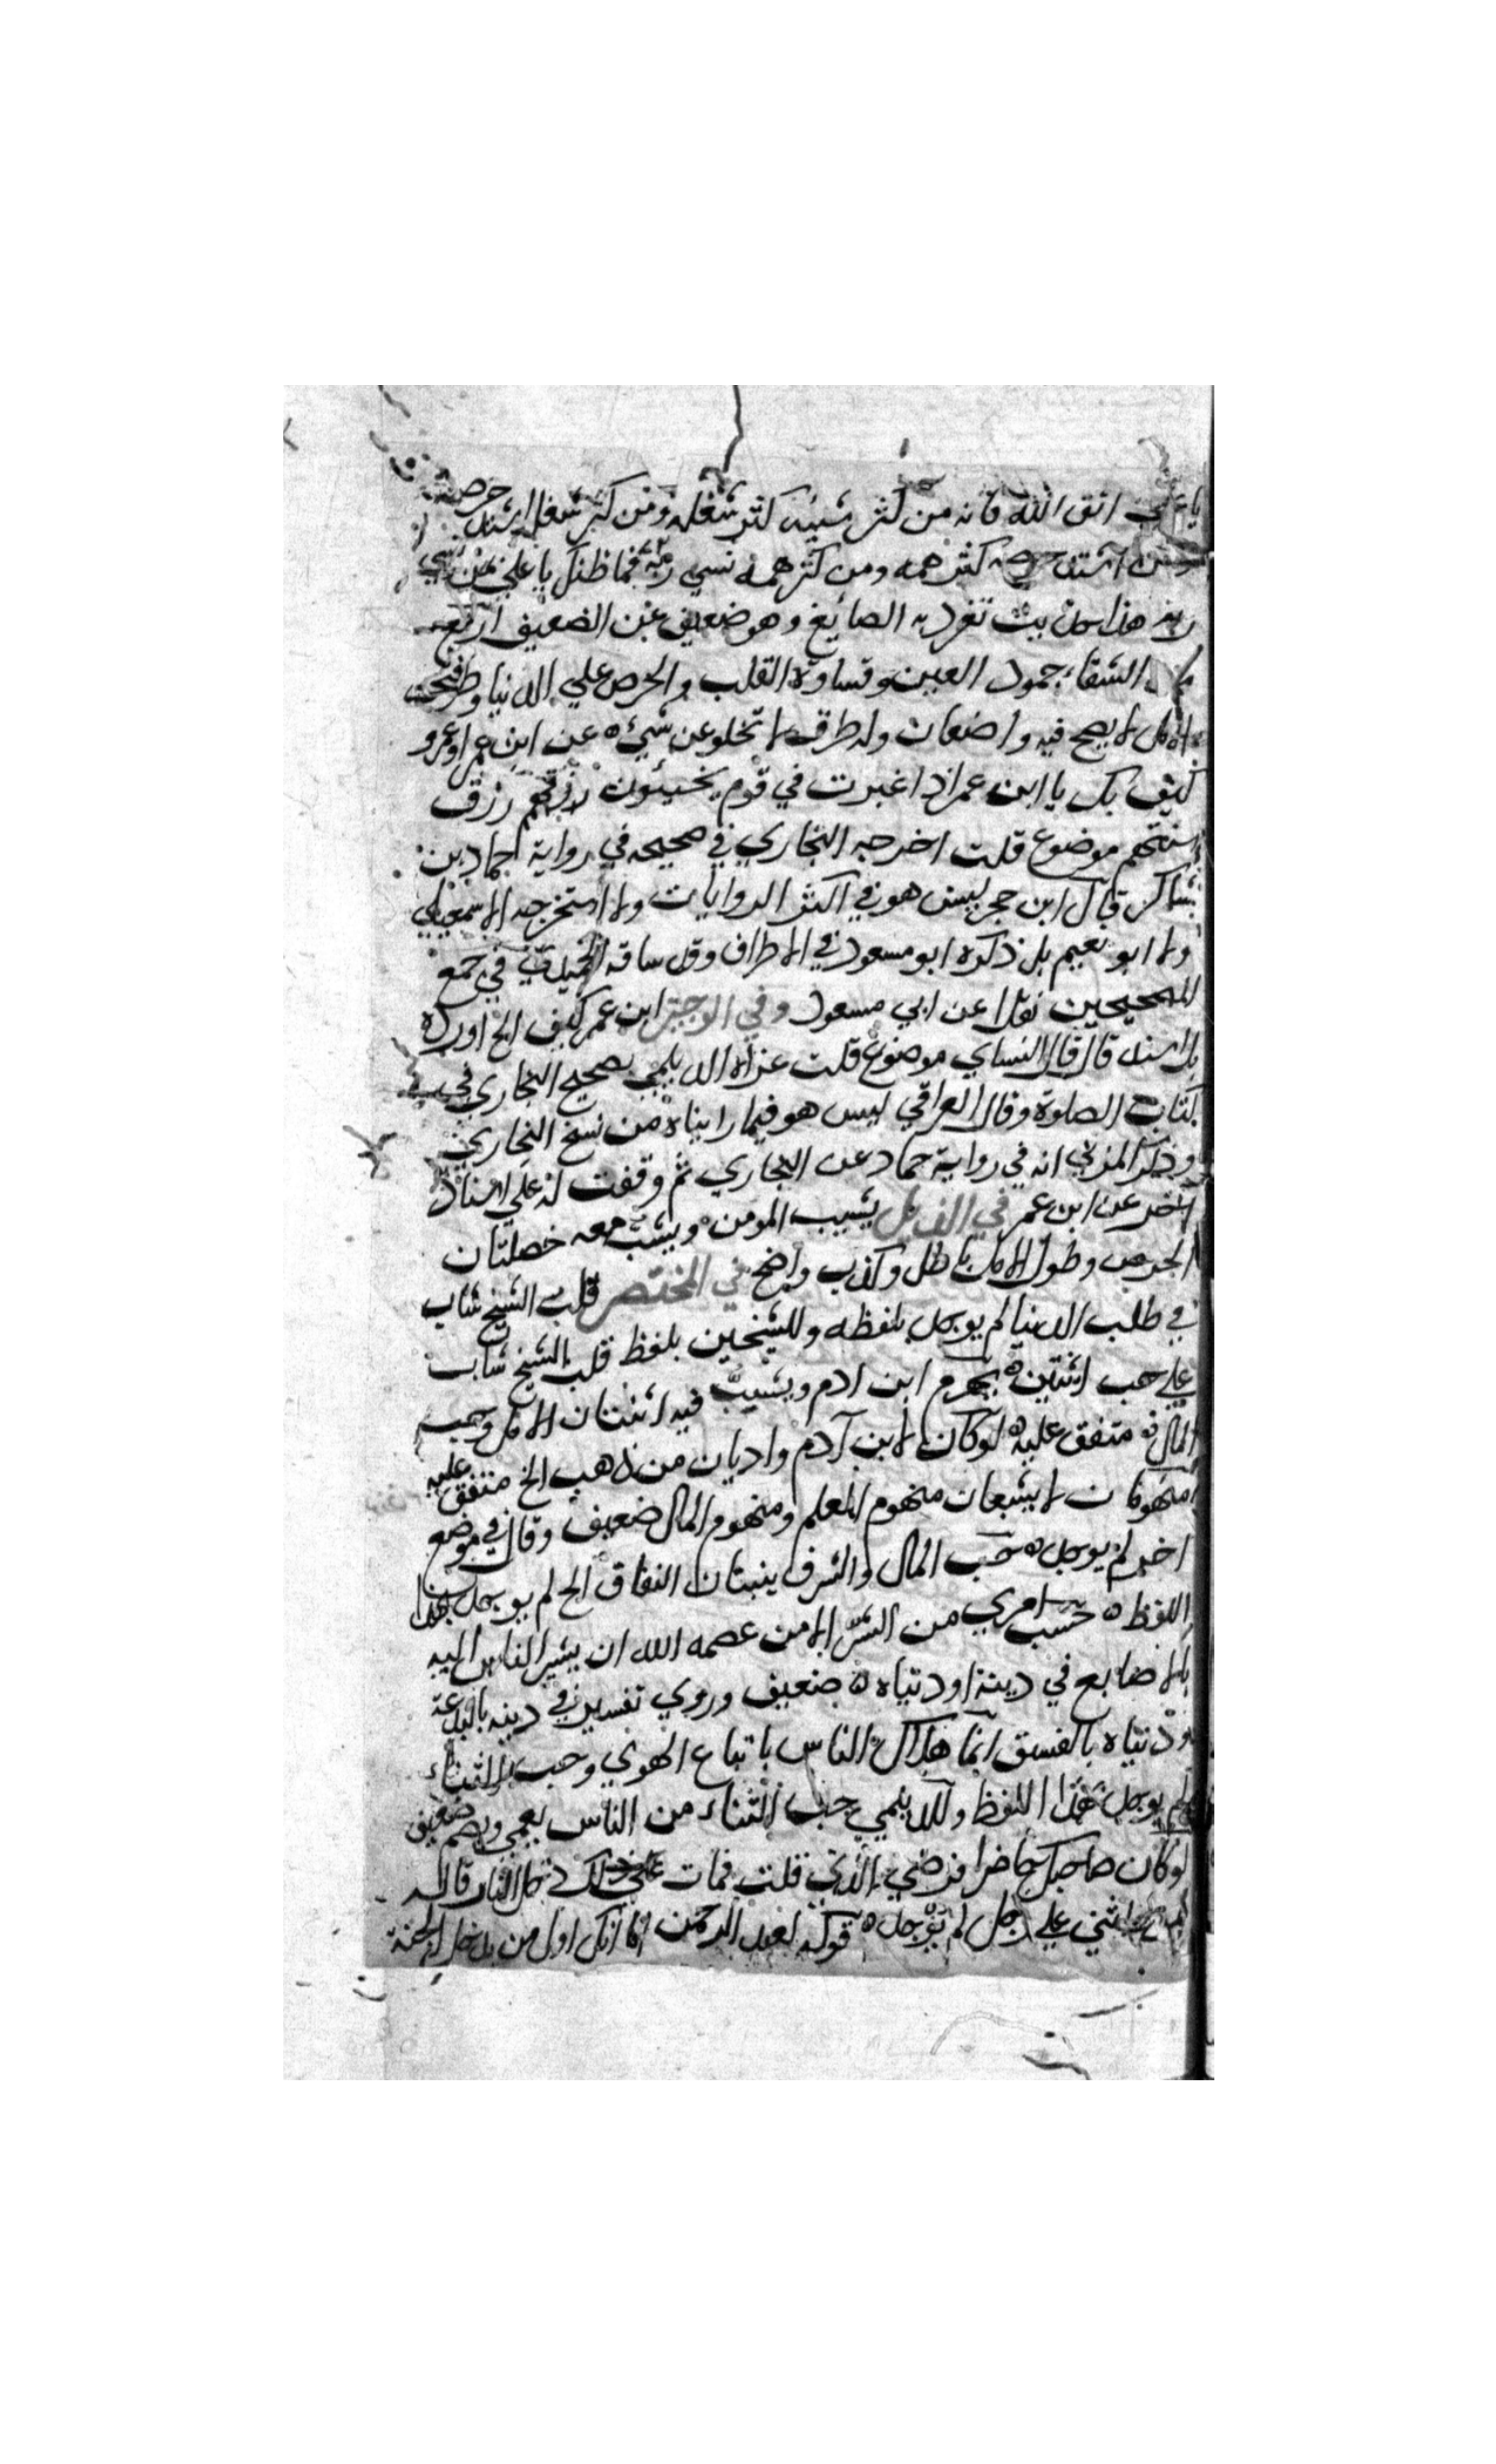 يا علي اتق الله فانه من كثر شبيه كثر شغله ومن كثر شغله اشتد حرصه
ومن اشتد حرصه كثر همه ومن كثر همه نسي ربه فما ظنك يا علي بمن نسي
ربه هذا حديث تفرد به الصايغ وهو ضعيف عن الضعيف اربع
من الشقاء جمود العين وقساوة القلب والحرص علي الدنيا وطول
الامل لا يصح فيه وضعان وله طرق لا تخلو عن شيء ٥ عن ابن عمر او عمرو
كيف بك يا ابن عمر اذا غبرت في قوم يخبئون رزق
سنتهم موضوع قلت اخرجه البخاري في صحيحه في رواية حماد بن
شاكر قال ابن حجر ليس هو في اكثر الروايات ولا استخرجه الاسمعيلي
ولا ابو نعيم بل ذكره ابو مسعود في الاطراف وقد ساقه الحميدي في جمع
الصحيحين نقلا عن ابي مسعود وفي الوجيز ابن عمر كيف الخ اورده
بلا سند قال قال النساي موضوع قلت عزاه الديلمي بصحيح البخاري في
كتاب الصلوة وقال العراقي ليس هو فيما رايناه من نسخ البخاري
وذكر المزي انه في رواية حماد عن البخاري ثم وقفت له علي اسناد
اخر عن ابن عمر في الذيل يشيب المومن ويشب معه خصلتان
الحرص وطول الامل باطل وكذب واضح في المختصر قلب الشيخ شاب
في طلب الدنيا لم يوجد بلفظه وللشيخين بلفظ قلب الشيخ شاب
علي حب اثنتين ٥ يهرم ابن ادم ويشب فيه اثنتان الامل وحب
المال ٥ متفق عليه ٥ لوكان لابن آدم واديان من ذهب الخ متفق عليه
منهومان لا يشبعان منهوم العلم ومنهوم المال ضعيف وقال في موضع
اخر لم يوجد ٥ حب المال والشرف ينبتان النفاق الخ لم يوجد بهذا
اللفظ ٥ حسب امري من الشر الا من عصمه الله ان يشير الناس اليه
بالاصابع في دينه او دنياه ٥ ضعيف وروي تفسيره في دينه بالبدعة
ودنياه بالفسق انما هلاك الناس باتباع الهوي وحب الثناء
لم يوجد بهذا اللفظ وللديلمي حب الثناء من الناس يعمي ويصم ضعيف
لوكان صاحبك حاضرا فرضي الذي قلت فمات علي ذلك دخل النار قاله
لمن اثني علي رجل لم يوجد ٥ قوله لعبد الرحمن اما انك اول من يدخل الجنة